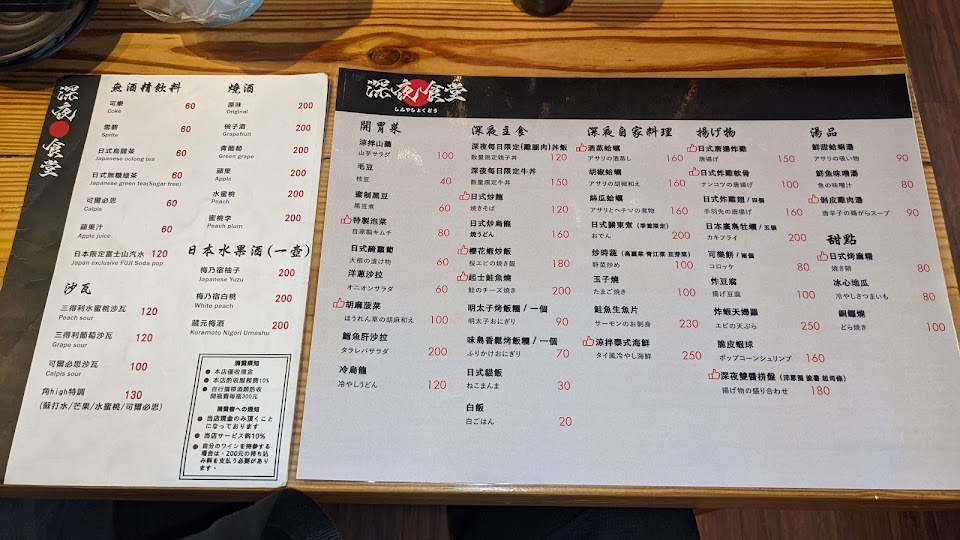 深夜食堂
魚酒精飲料
可樂 60
Coke
雪碧 60
Sprite
日式烏龍茶 60
Japanese oolong tea
日式無糖綠茶 60
Japanese green tea(Sugar free)
可爾必思 60
Calpis
蘋果汁 60
Apple juice
日本限定富士山汽水 120
Japan exclusive FUJI Soda pop
沙瓦
三得利水蜜桃沙瓦 120
Peach sour
三得利葡萄沙瓦 120
Grape sour
可爾必思沙瓦 100
Calpis sour
角high特調 130
(蘇打水/芒果/水蜜桃/可爾必思)
燒酒
原味 200
Original
柚子酒 200
Grapefruit
青葡萄 200
Green grape
蘋果 200
Apple
水蜜桃 200
Peach
蜜桃李 200
Peach plum
日本水果酒(一壺)
梅乃宿柚子 200
Japanese Yuzu
梅乃宿白桃 200
White peach
蔵元梅酒 200
Kuramoto Nigori Umeshu
消費須知
● 本店僅收現金
● 本店酌收服務費10%
● 自行攜帶酒類酌收
開瓶費每瓶300元
消費者への通知
● 当店現金のみ頂くこと
になっております
● 当店サービス料10%
● 自分のワインを持参する
場合は、200元の持ち込
み料を支払う必要があり
ます。
深夜食堂
しんやしょくどう
開胃菜
涼拌山藥
山芋サラダ 100
毛豆
枝豆 40
蜜制黑豆
黒豆煮 60
特製泡菜
自家製キムチ 60
日式醃蘿蔔
大根の漬け物 60
洋蔥沙拉
オニオンサラダ 60
胡麻菠菜
ほうれん草の胡麻和え 100
鱈魚肝沙拉
タラレバサラダ 200
冷烏龍
冷やしうどん 120
深夜主食
深夜每日限定(雞腿肉)丼飯
数量限定親子丼 120
深夜每日限定牛丼
数量限定牛丼 150
日式炒麵
焼きそば 120
日式炒烏龍
焼うどん 160
櫻花蝦炒飯
桜エビの焼き飯 180
起士鮭魚燒
鮭のチーズ焼き 200
明太子烤飯糰 / 一個
明太子おにぎり 90
味島香鬆烤飯糰 / 一個
ふりかけおにぎり 70
日式貓飯
ねこまんま 30
白飯
白ごはん 20
深夜自家料理
酒蒸蛤蠣
アサリの酒蒸し 160
胡椒蛤蠣
アサリの胡椒和え 160
絲瓜蛤蠣
アサリとヘチマの煮物 160
日式關東煮 (季節限定)
おでん 200
炒時蔬 (高麗菜 青江菜 豆芽菜)
野菜炒め 100
玉子燒
たまご焼き 100
鮭魚生魚片
サーモンのお刺身 230
涼拌泰式海鮮
タイ風冷やし海鮮 250
揚げ物
日式唐揚炸雞
唐揚げ 150
日式炸雞軟骨
ナンコツの唐揚げ 100
日式炸雞翅 / 四個
手羽先の唐揚げ 160
日本廣島牡蠣 / 五個
カキフライ 200
可樂餅 / 兩個
コロッケ 80
炸豆腐
揚げ豆腐 100
炸蝦天婦羅
エビの天ぷら 250
脆皮蝦球
ポップコーンシュリンプ 160
深夜雙醬拼盤 (洋蔥圈 脆薯 起司條)
揚げ物の盛り合わせ 180
湯品
鮮甜蛤蠣湯
アサリの吸い物 90
鮭魚味噌湯
魚の味噌汁 80
剝皮雞肉湯
唐辛子の鶏がらスープ 90
甜點
日式烤麻糬
焼き餅 80
冰心地瓜
冷やしさつまいも 80
銅鑼燒
どら焼き 100